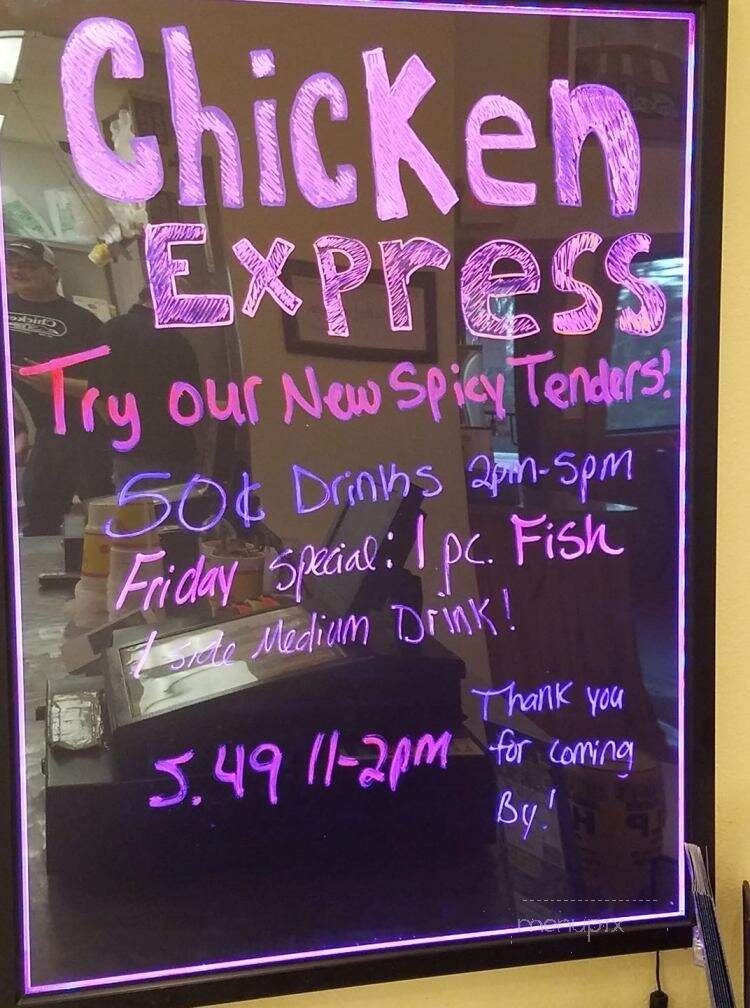 Chicken
Express
Try our New Spicy Tenders!
50¢ Drinks 2pm-5pm
Friday Special: 1 pc. Fish
1 side Medium Drink!
5.49 11-2pm
Thank you
for coming
By!
menupix